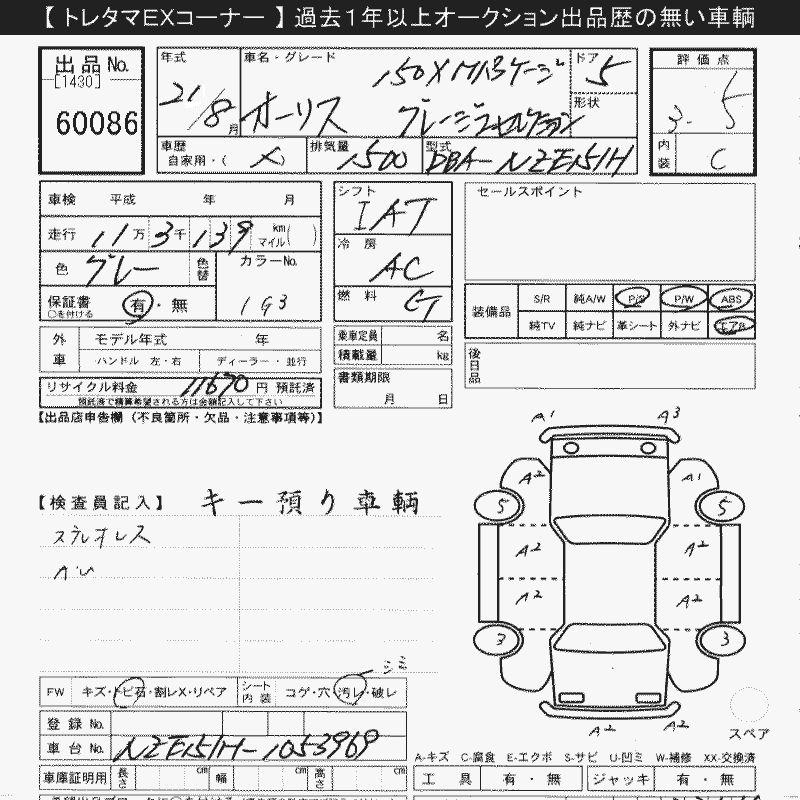 【 トレタマEXコーナー 】 過去1年以上オークション出品歴の無い車輌
出品 No.
[1430]
60086
年式
21/8月
車名・グレード
150X Mパッケージ
オーリス
ドア
5
形状
評価点
3.5
内装
C
車歴
自家用・( × )
排気量
1500
型式
DBA-NZE151H
車検 平成 年 月
走行 11万3千139 km マイル( )
色 グレー
色替
カラーNo.
1G3
保証書 有・無
○を付ける
外車
モデル年式 年
ハンドル 左・右
ディーラー・並行
リサイクル料金 11670 円 預託済
預託済で精算希望される方は金額記入して下さい
シフト
IAT
冷房
AC
燃料
G
乗車定員 名
積載量 kg
書類期限
月 日
セールスポイント
装備品
S/R 純A/W P/S P/W ABS
純TV 純ナビ 革シート 外ナビ エアB
後日品
【出品店申告欄（不良箇所・欠品・注意事項等）】
【検査員記入】 キー預り車輌
ステレオレス
A1 A3
A2 A1
5 5
A2 A2
A2 A2
3 3
A2 A2
スペア
シミ
FW キズ・トビ石・割レX・リペア
シート内装 コゲ・穴・汚レ・破レ
登録 No.
車台 No. NZE151H-1053969
車庫証明用 長さ cm 幅 cm 高さ cm
A-キズ C-腐食 E-エクボ S-サビ U-凹ミ W-補修 XX-交換済
工具 有・無 ジャッキ 有・無